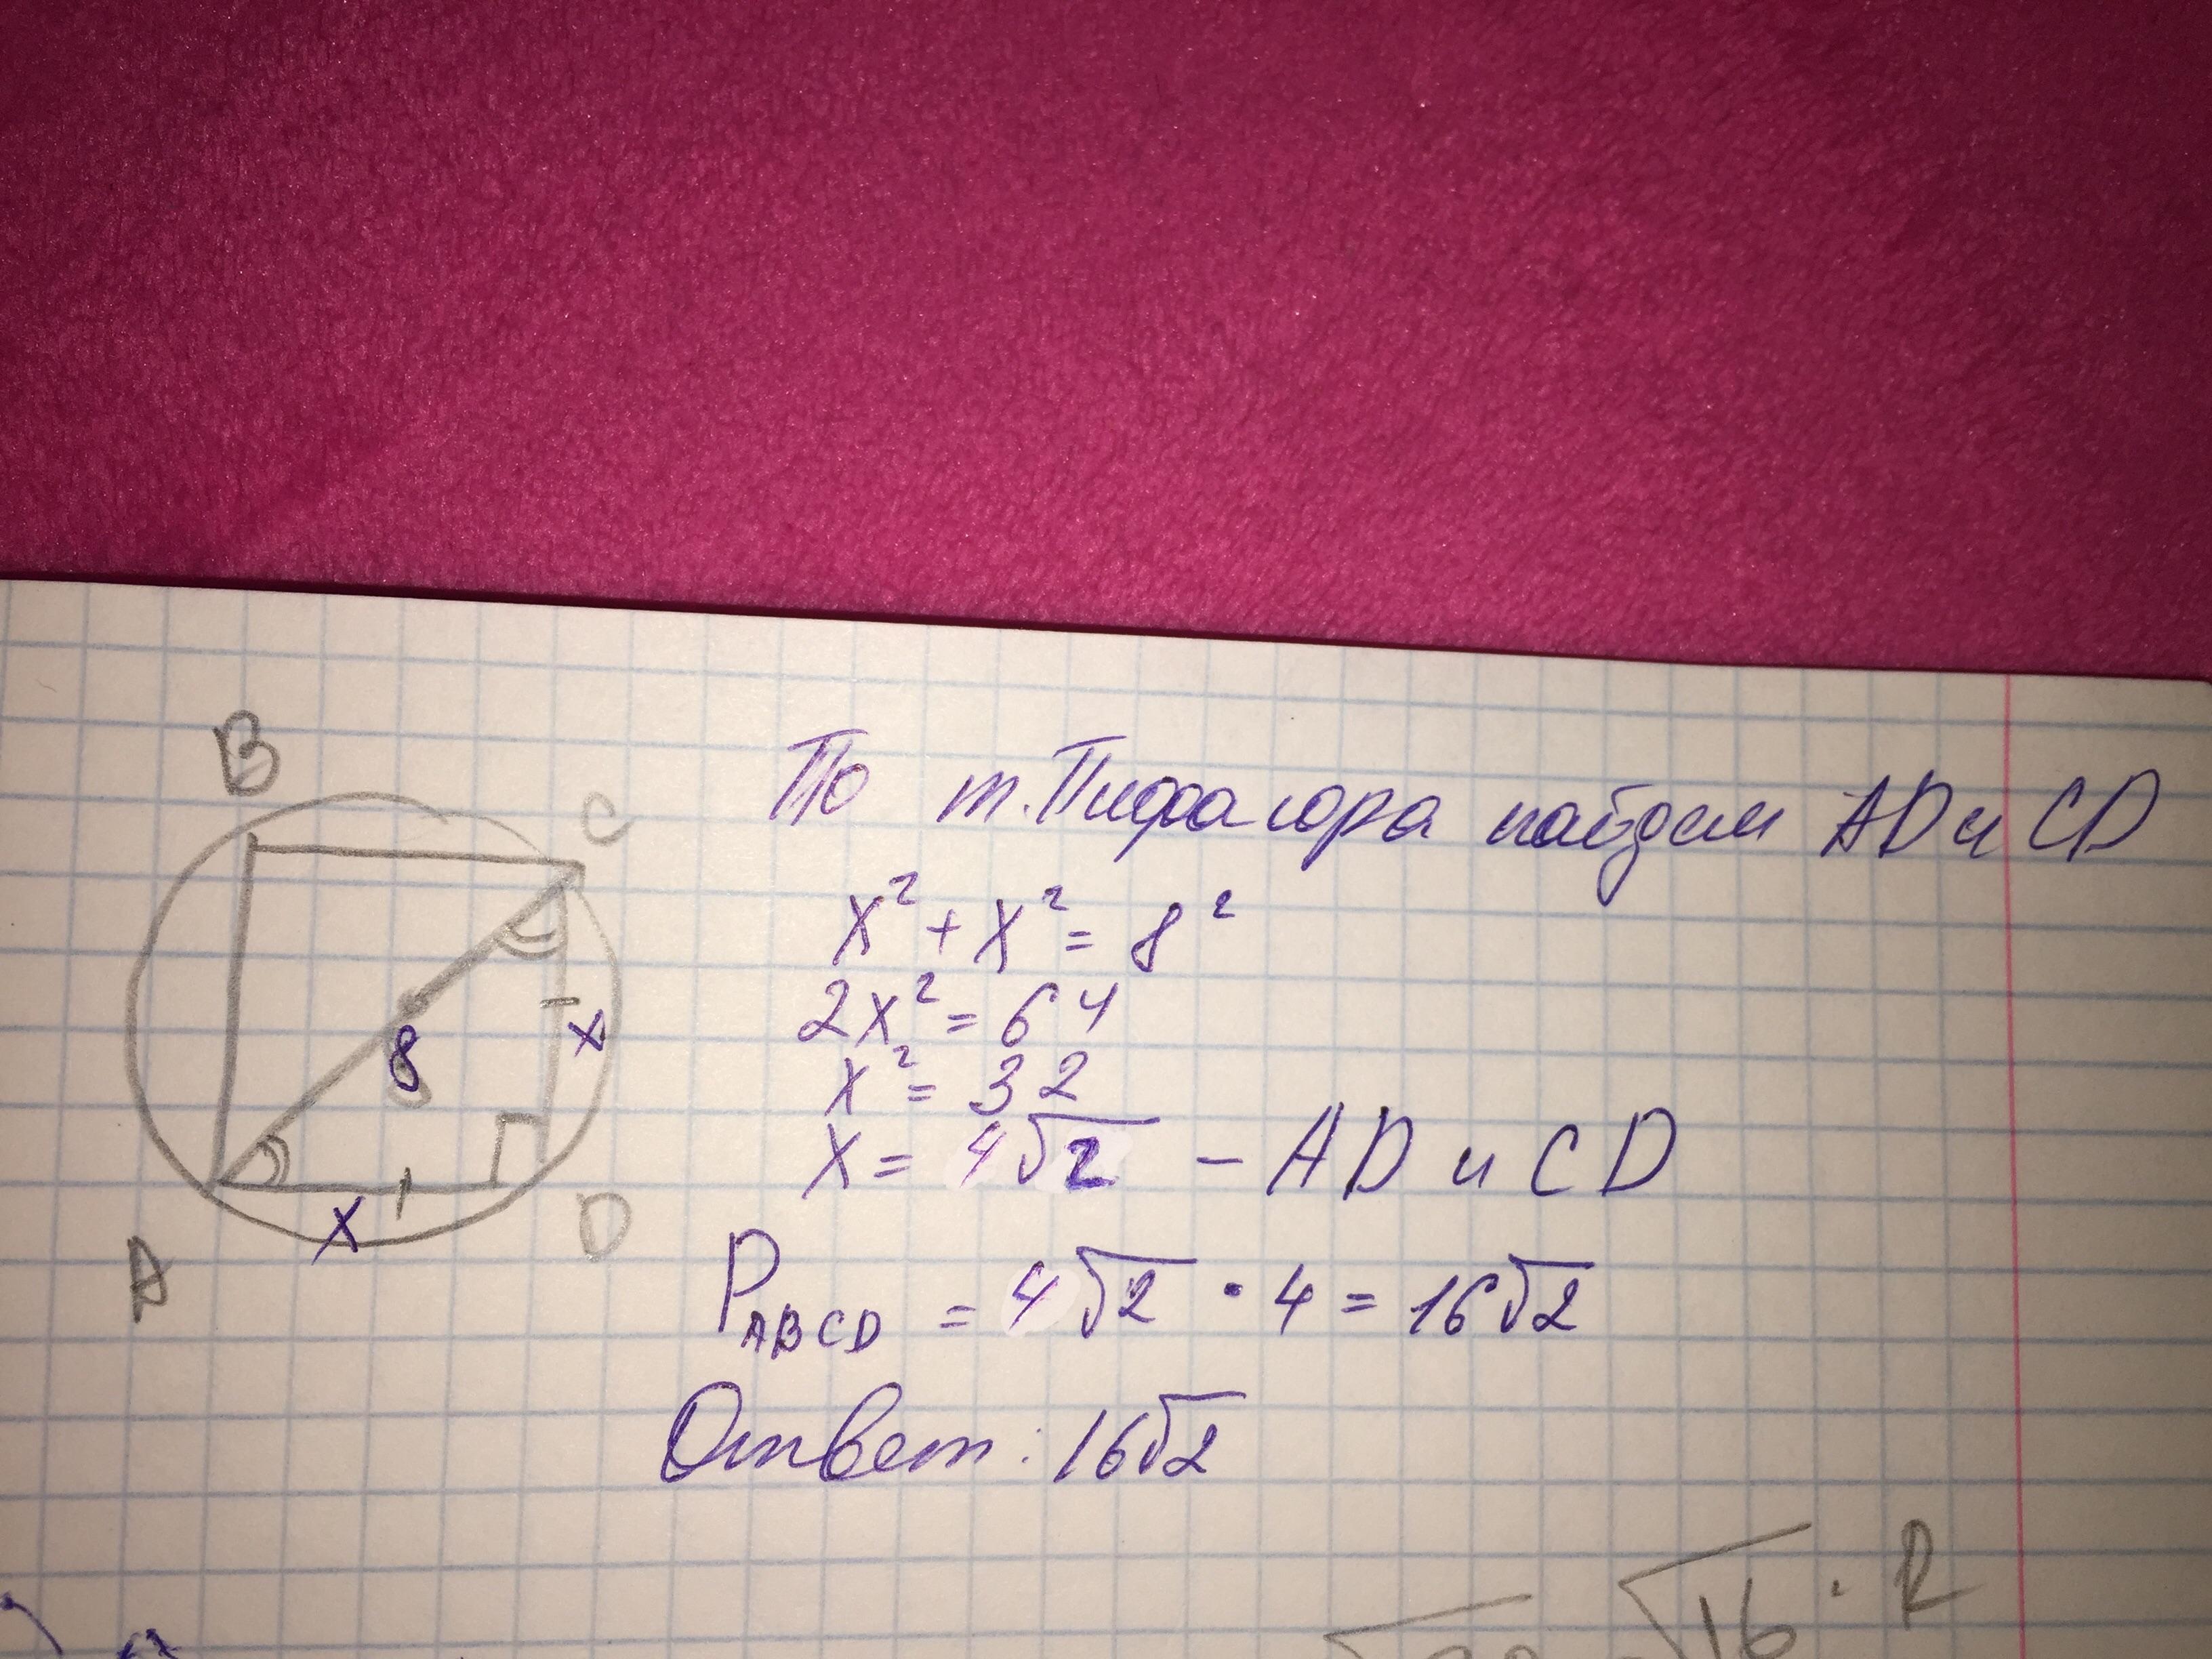 B
C
8
x
x
A
D
По т. Пифагора найдем AD и CD
x² + x² = 8²
2x² = 64
x² = 32
x = 4√2 – AD и CD
P ABCD = 4√2 · 4 = 16√2
Ответ: 16√2
√16 · 2